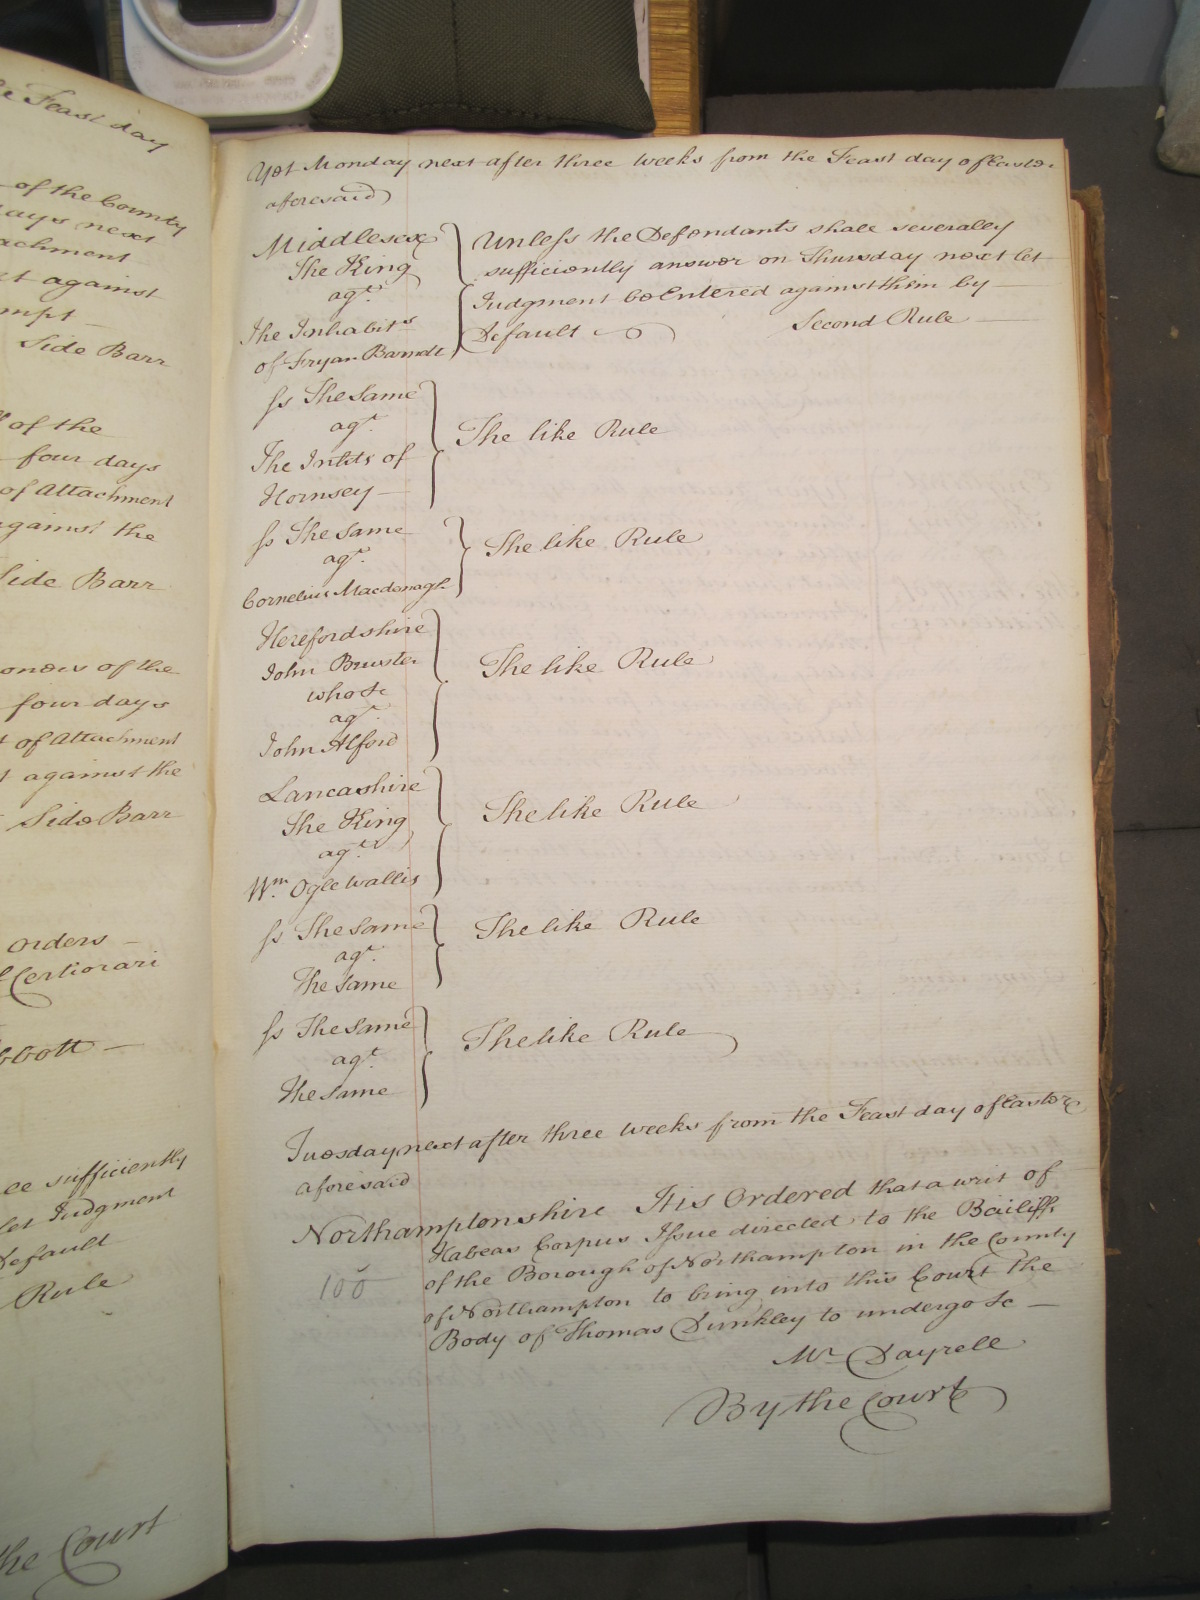 e Feast day
of the County
ays next
achment
t against
mpt
Side Barr
of the
four days
of Attachment
gainst the
Side Barr
onors of the
four days
t of Attachment
t against the
Side Barr
Orders
Certiorari
bbott
ee sufficiently
let Judgment
Default
Rule
the Court
Yet Monday next after three weeks from the Feast day of Easter
aforesaid
Middlesex
The King
agt.
The Inhabits
of Fryan Barnett
Unless the Defendants shall severally
sufficiently answer on Thursday next let
Judgment be Entered against them by
Default
Second Rule
ss The Same
agt.
The Inbts of
Hornsey
The like Rule
ss The Same
agt.
Cornelius Macdonagh
The like Rule
Herefordshire
John
who &c
agt.
John Alford
The like Rule
Lancashire
The King
agt.
Wm. Ogle Wallis
The like Rule
ss The Same
agt.
The Same
The like Rule
ss The Same
agt
The Same
The like Rule
Tuesday next after three weeks from the Feast day of Easter
aforesaid
Northamptonshire It is Ordered that a writ of
Habeas Corpus Issue directed to the Bailiffs
of the Borough of Northampton in the County
of Northampton to bring into this Court the
Body of Thomas Dunkley to undergo &c
100
Mr Dayrell
By the Court